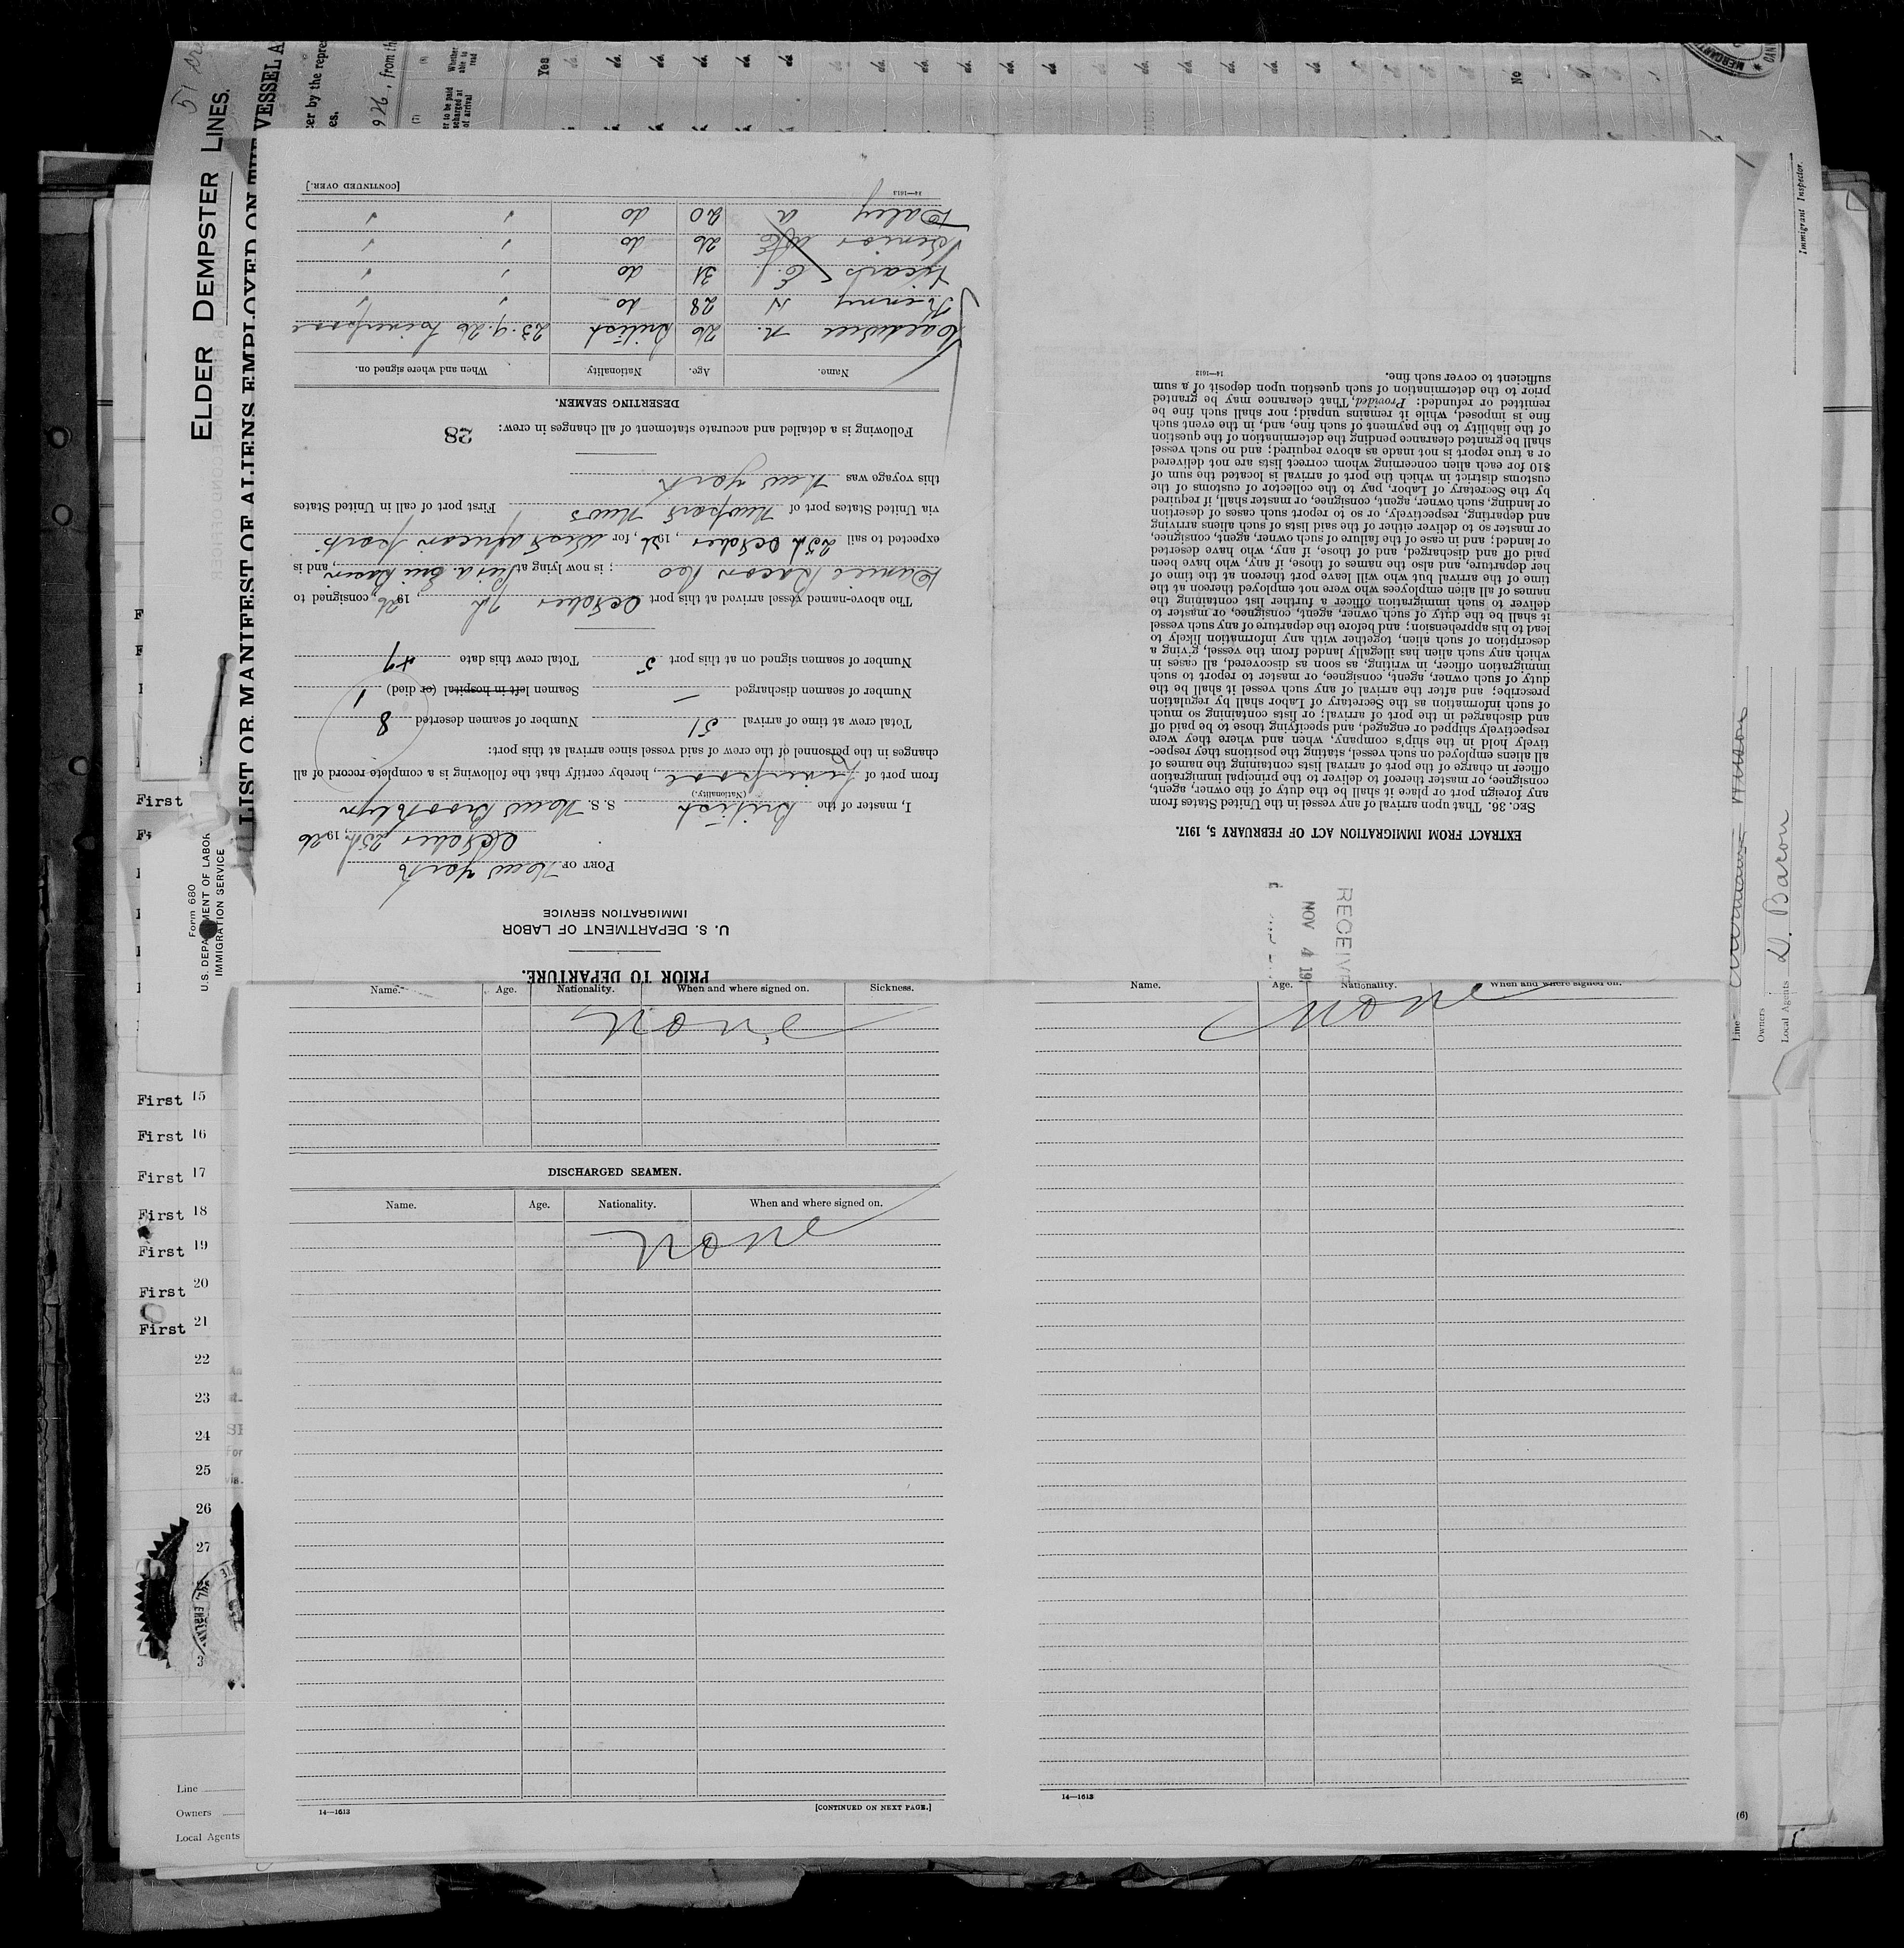 ELDER DEMPSTER LINES.
LIST OR MANIFEST OF ALIENS EMPLOYED ON THE VESSEL A
Form 680
U.S. DEPARTMENT OF LABOR
IMMIGRATION SERVICE
PRIOR TO DEPARTURE.
U. S. DEPARTMENT OF LABOR
IMMIGRATION SERVICE
PORT OF New York
October 25th, 1926
I, master of the British S. S. New Brooklyn
(Nationality.)
from port of Liverpool, hereby certify that the following is a complete record of all
changes in the personnel of the crew of said vessel since arrival at this port:
Total crew at time of arrival 51 Number of seamen deserted 8
Number of seamen discharged — Seamen left in hospital (or died) 1
Number of seamen signed on at this port 5 Total crew this date 47
The above-named vessel arrived at this port October 7th, 1926, consigned to
Daniel Bacon Co; is now lying at Pier 2 Erie Basin, and is
expected to sail 25th October, 1926, for West African ports
via United States port of Newport News First port of call in United States
this voyage was New York
Following is a detailed and accurate statement of all changes in crew: 28
DESERTING SEAMEN.
Name. Age. Nationality. When and where signed on.
Caldwell R. 26 British 23.9.26 Liverpool
Kenny H 28 do " "
E. 31 do " "
Senior 26 do " "
Daley A 20 do " "
14—1613 [CONTINUED OVER.]
RECEIVE
NOV 4 19
EXTRACT FROM IMMIGRATION ACT OF FEBRUARY 5, 1917.
SEC. 36. That upon arrival of any vessel in the United States from
any foreign port or place it shall be the duty of the owner, agent,
consignee, or master thereof to deliver to the principal immigration
officer in charge of the port of arrival lists containing the names of
all aliens employed on such vessel, stating the positions they respec-
tively hold in the ship's company, when and where they were
respectively shipped or engaged, and specifying those to be paid off
and discharged in the port of arrival; or lists containing so much
of such information as the Secretary of Labor shall by regulation
prescribe; and after the arrival of any such vessel it shall be the
duty of such owner, agent, consignee, or master to report to such
immigration officer, in writing, as soon as discovered, all cases in
which any such alien has illegally landed from the vessel, giving a
description of such alien, together with any information likely to
lead to his apprehension; and before the departure of any such vessel
it shall be the duty of such owner, agent, consignee, or master to
deliver to such immigration officer a further list containing the
names of all alien employees who were not employed thereon at the
time of the arrival but who will leave port thereon at the time of
her departure, and also the names of those, if any, who have been
paid off and discharged, and of those, if any, who have deserted
or landed; and in case of the failure of such owner, agent, consignee,
or master so to deliver either of the said lists of such aliens arriving
and departing, respectively, or so to report such cases of desertion
or landing, such owner, agent, consignee, or master shall, if required
by the Secretary of Labor, pay to the collector of customs of the
customs district in which the port of arrival is located the sum of
$10 for each alien concerning whom correct lists are not delivered
or a true report is not made as above required; and no such vessel
shall be granted clearance pending the determination of the question
of the liability to the payment of such fine, and, in the event such
fine is imposed, while it remains unpaid; nor shall such fine be
remitted or refunded: Provided, That clearance may be granted
prior to the determination of such question upon deposit of a sum
sufficient to cover such fine.
14—1612
Name. Age. Nationality. When and where signed on. Sickness.
None
DISCHARGED SEAMEN.
Name. Age. Nationality. When and where signed on.
None
14—1613 [CONTINUED ON NEXT PAGE.]
Name. Age. Nationality. When and where signed on.
None
14—1613
First
First 15
First 16
First 17
First 18
First 19
First 20
First 21
22
23
24
25
26
27
Line
Owners
Local Agents
Immigrant Inspector.
Line
Owners
Local Agents D. Bacon
(6)